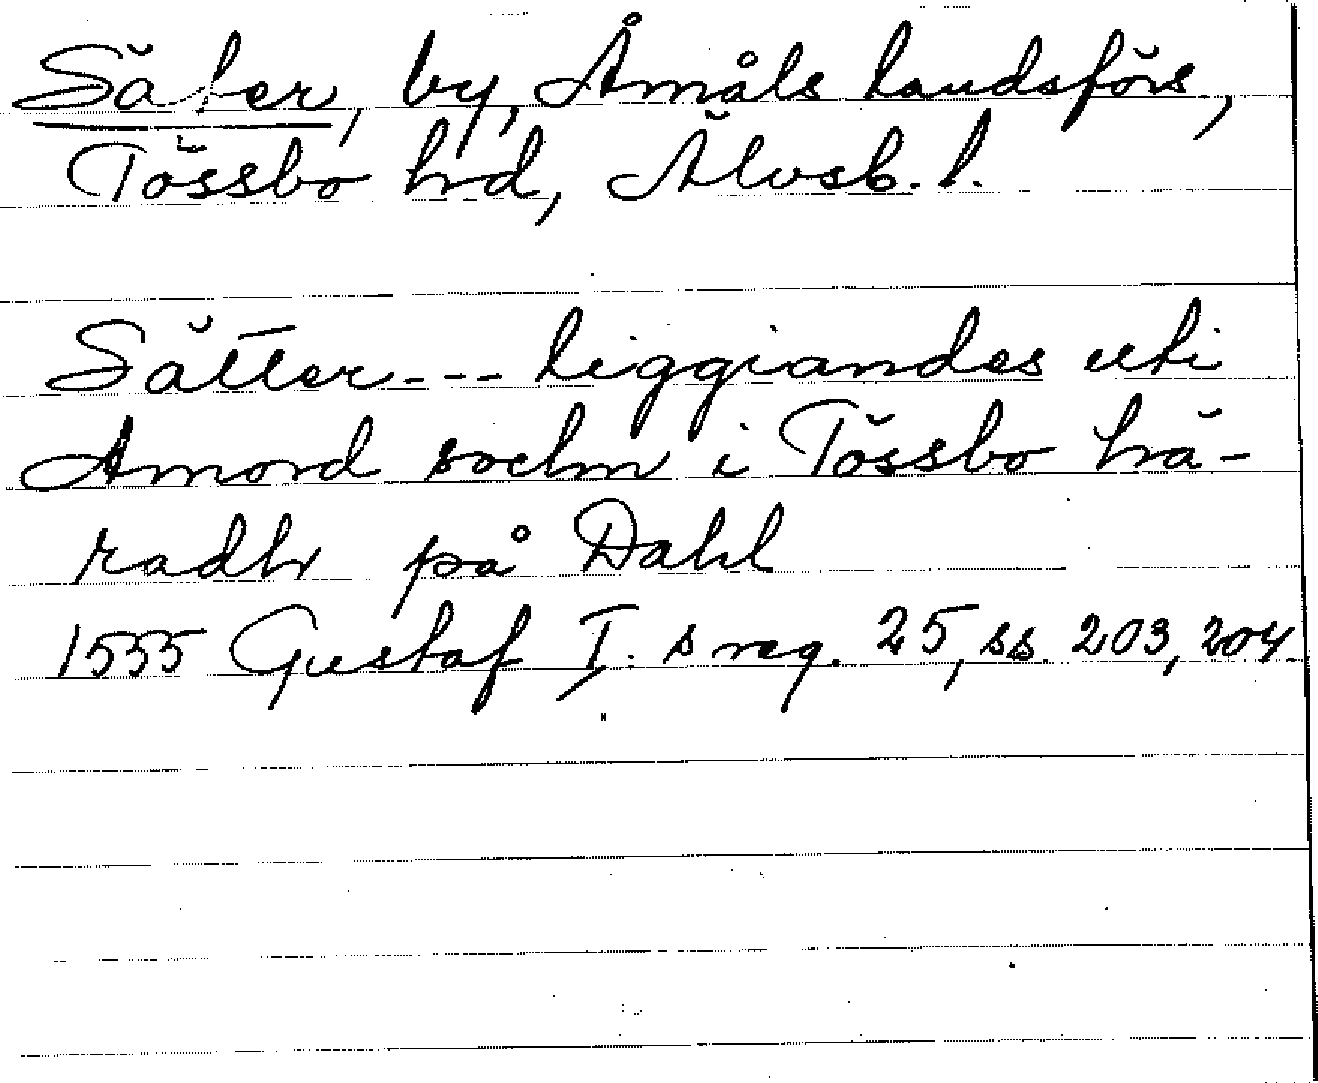 Säter, by, Åmåls landsförs,
Tössbo hrd, Älvsb. l.
Sätter --- liggiandes uti
Amord sochn i Tössbo hä-
radh på Dahl
1555 Gustaf I:s reg. 25, ss. 203, 204